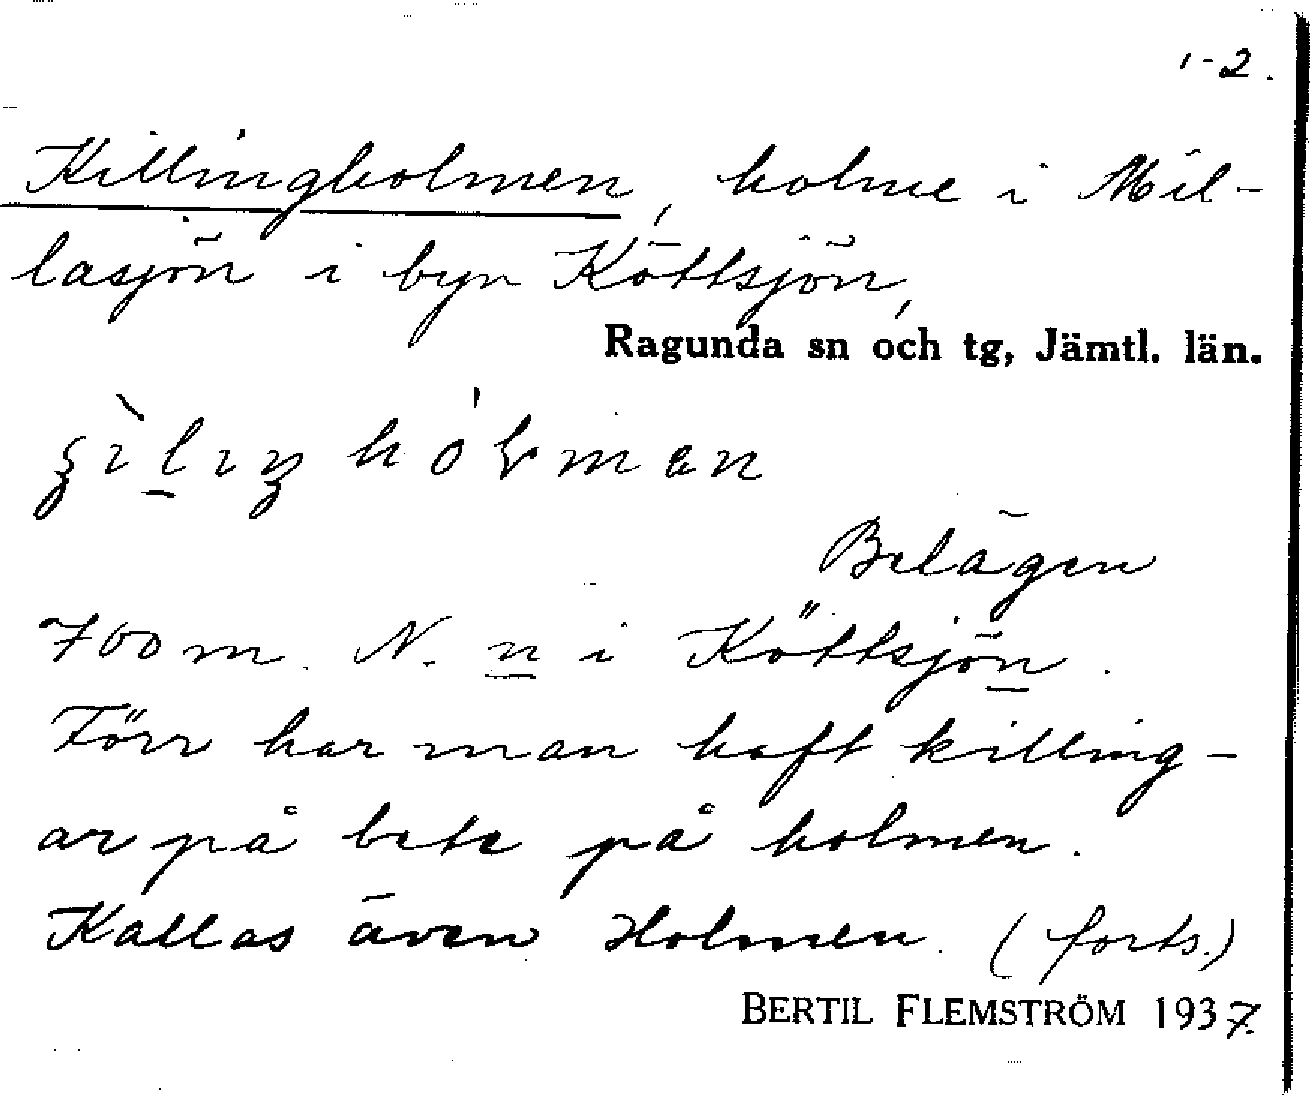 1-2.
Killingholmen, holme i Mil-
lasjön i byn Köttsjön,
Ragunda sn och tg, Jämtl. län.
Belägen
700 m. N. n i Köttsjön.
Förr har man haft killing-
ar på bete på holmen.
Kallas även Holmen. (forts.)
BERTIL FLEMSTRÖM 1937.